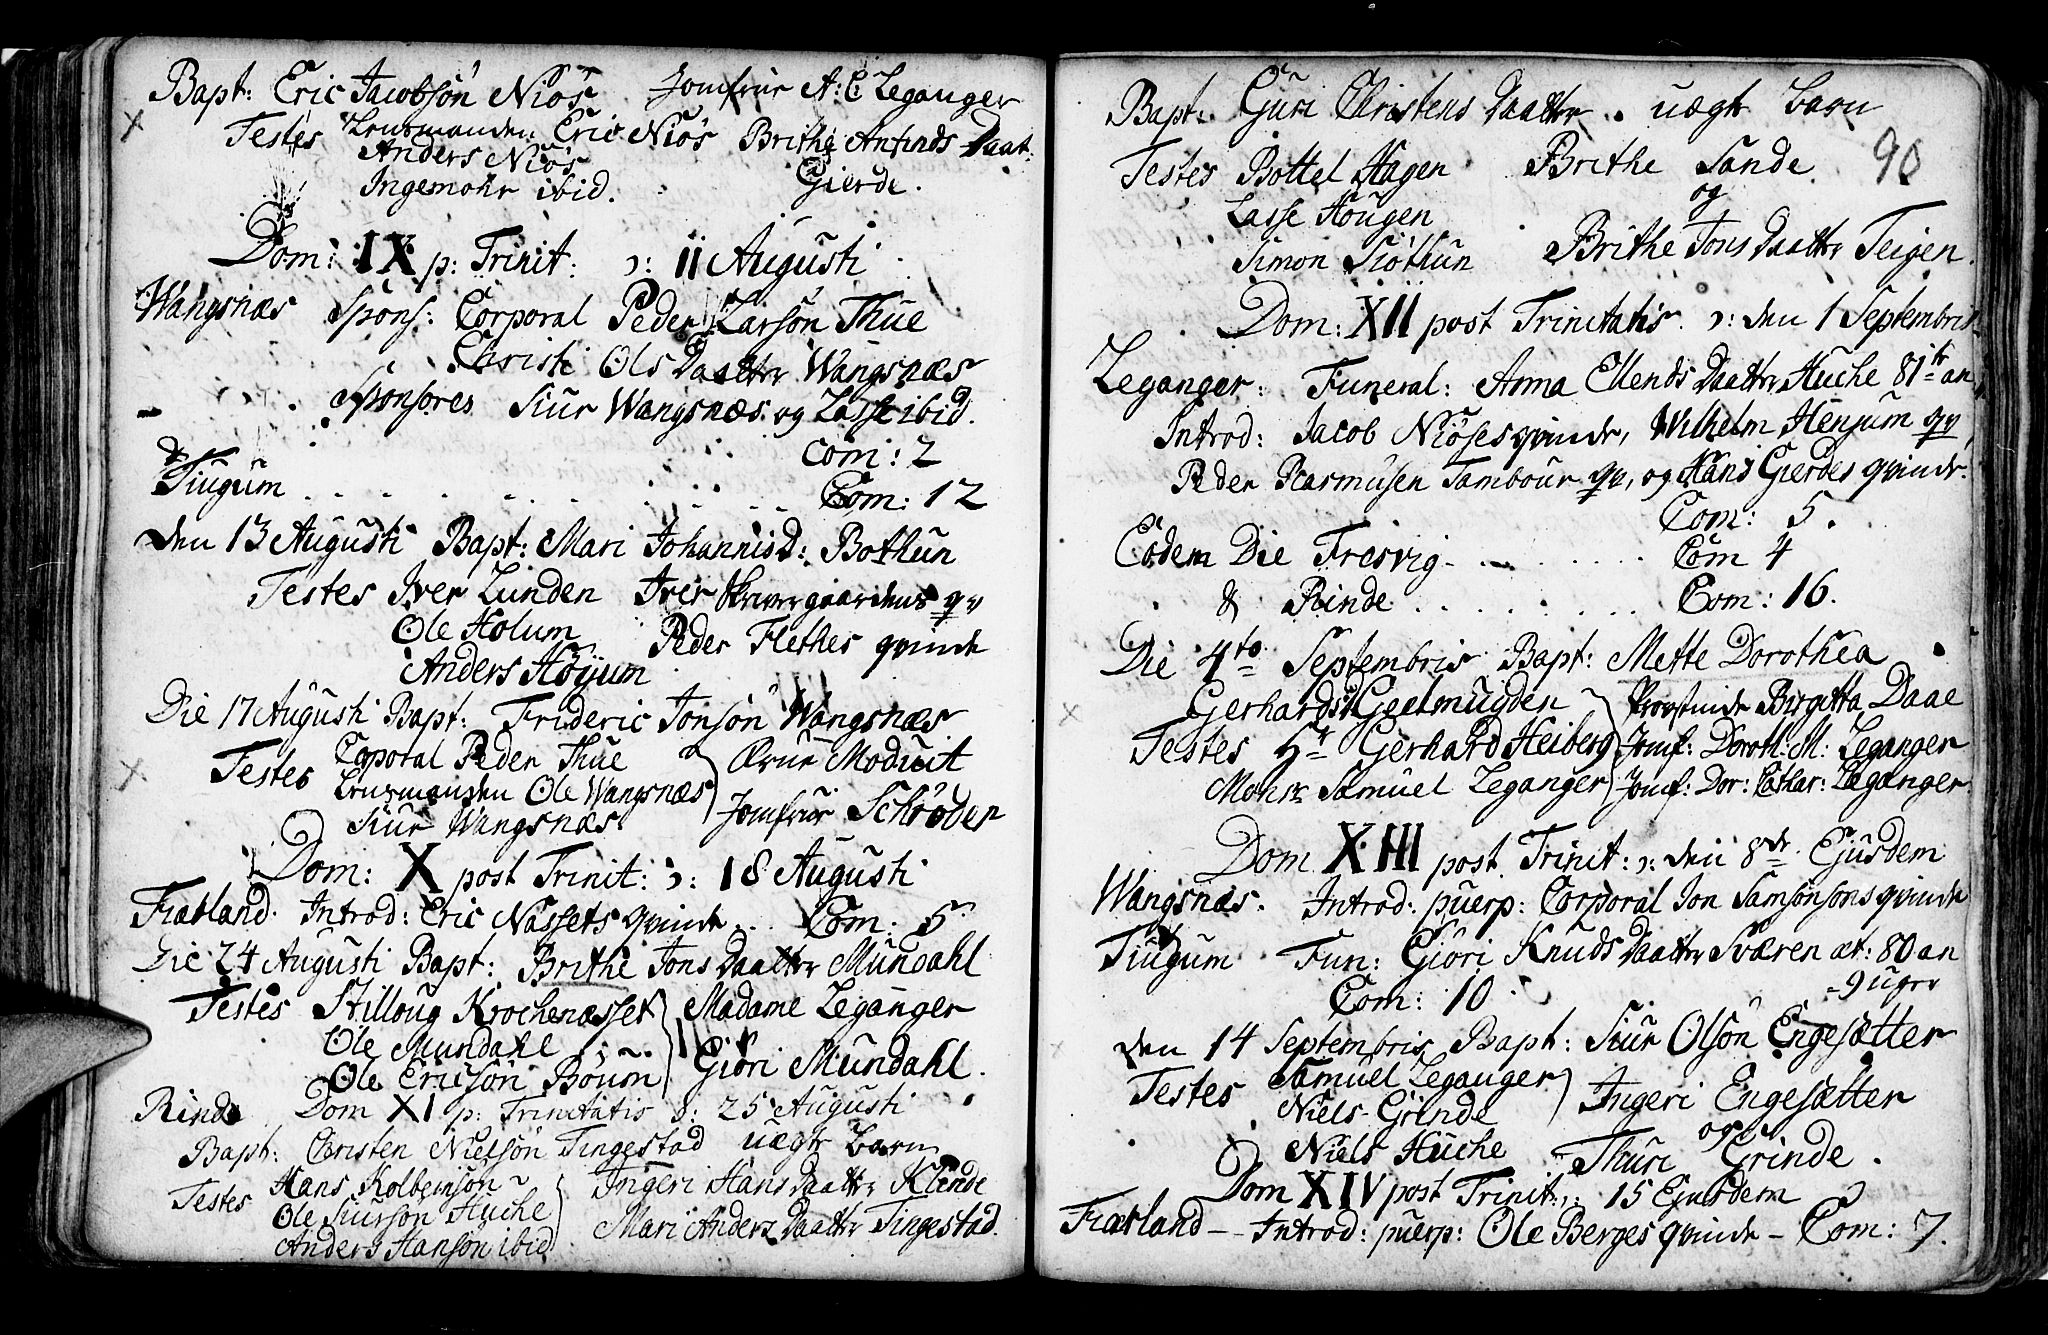 Bapt: Eric Jacobsön Niös Jomfrue A: C: Leganger
Testes Lensmanden Eric Niös Brithe Anfinds Daat:
Anders Niös
Ingemohr ibid. Gierde.
Dom: IX p: Trinit: ɔ: 11 Augusti
Wangsnæs Spons: Corporal Peder Larsön Thue
Christi Ols Daatter Wangsnæs
Sponsores Siur Wangsnæs og Lasse ibid.
Com: 2
& Tiugum Com: 12
den 13 Augusti Bapt: Mari Johannisd: Bothun
Testes Iver Lunden Iver Skrivergaardens qv
Ole Holum Peder Flethes qvinde
Anders Höyum
Die 17 Augusti Bapt: Frideric Jonsön Wangsnæs
Testes Corporal Peder Thue Frue Moduit
Lensmanden Ole Wangsnæs Jomfrue Schröder
Siur Wangsnæs
Dom: X post Trinit: ɔ: 18 Augusti
Fiærland. Introd: Eric Nässets qvinde Com: 5
Die 24 Augusti Bapt: Brithe Jons Daatter Mundahl
Testes Stilloug Krochenæsset Madame Leganger
Ole Mundahl
Ole Ericsön Böum Giöri Mundahl.
Rinde Dom XI p: Trinitatis ɔ: 25 Augusti
Bapt: Christen Nielsön Tingestad uægte Barn
Testes Hans Kolbeinsön Ingeri Hans Daatter Klinde
Ole Siursön Huche
Anders Hansön ibid Mari Anders Daatter Tingestad.
Bapt: Guri Christens Daatter. uægte Barn
90
Testes Bottel Hagen Brithe Sande
Lasse Hougen og
Simon Siöthun Brithe Jons Daatter Teigen.
Dom: XII post Trinitatis ɔ: den 1 Septembris
Leganger: Funeral: Anna Ellends Daatter Huche 81 an
Introd: Jacob Niöses qvinde, Wilhelm Henjum qv
Peder Rasmusen Tambour qv, og Hans Gierdes qvinde.
Com: 5.
Eodem Die Fresvig Com 4
& Rinde Com: 16.
Die 4to Septembris Bapt: Mette Dorothea
Gerhardsd Geelmuyden Provstinde Birgitta Daae
Testes Hr Gerhard Heiberg Jomf: Doroth: M: Leganger
Mohr Samuel Leganger Jomf: Dor: Cathar: Leganger
Dom XIII post Trinit: ɔ: den 8de Ejusdem
Wangsnæs. Introd: puerp: Corporal Jon Samsonsons qvinde
Tiugum Fun: Giöri Knuds Daatter Sværen æt: 80 an
9 uger
Com: 10
den 14 Septembris Bapt: Siur Olsön Engesætter
Testes Samuel Leganger Ingeri Engesætter
Niels Grinde og
Niels Huche Thuri Grinde.
Dom XIV post Trinit: ɔ: 15 Ejusdem
Fiærland — Introd: puerp: Ole Berges qvinde — Com: 7.